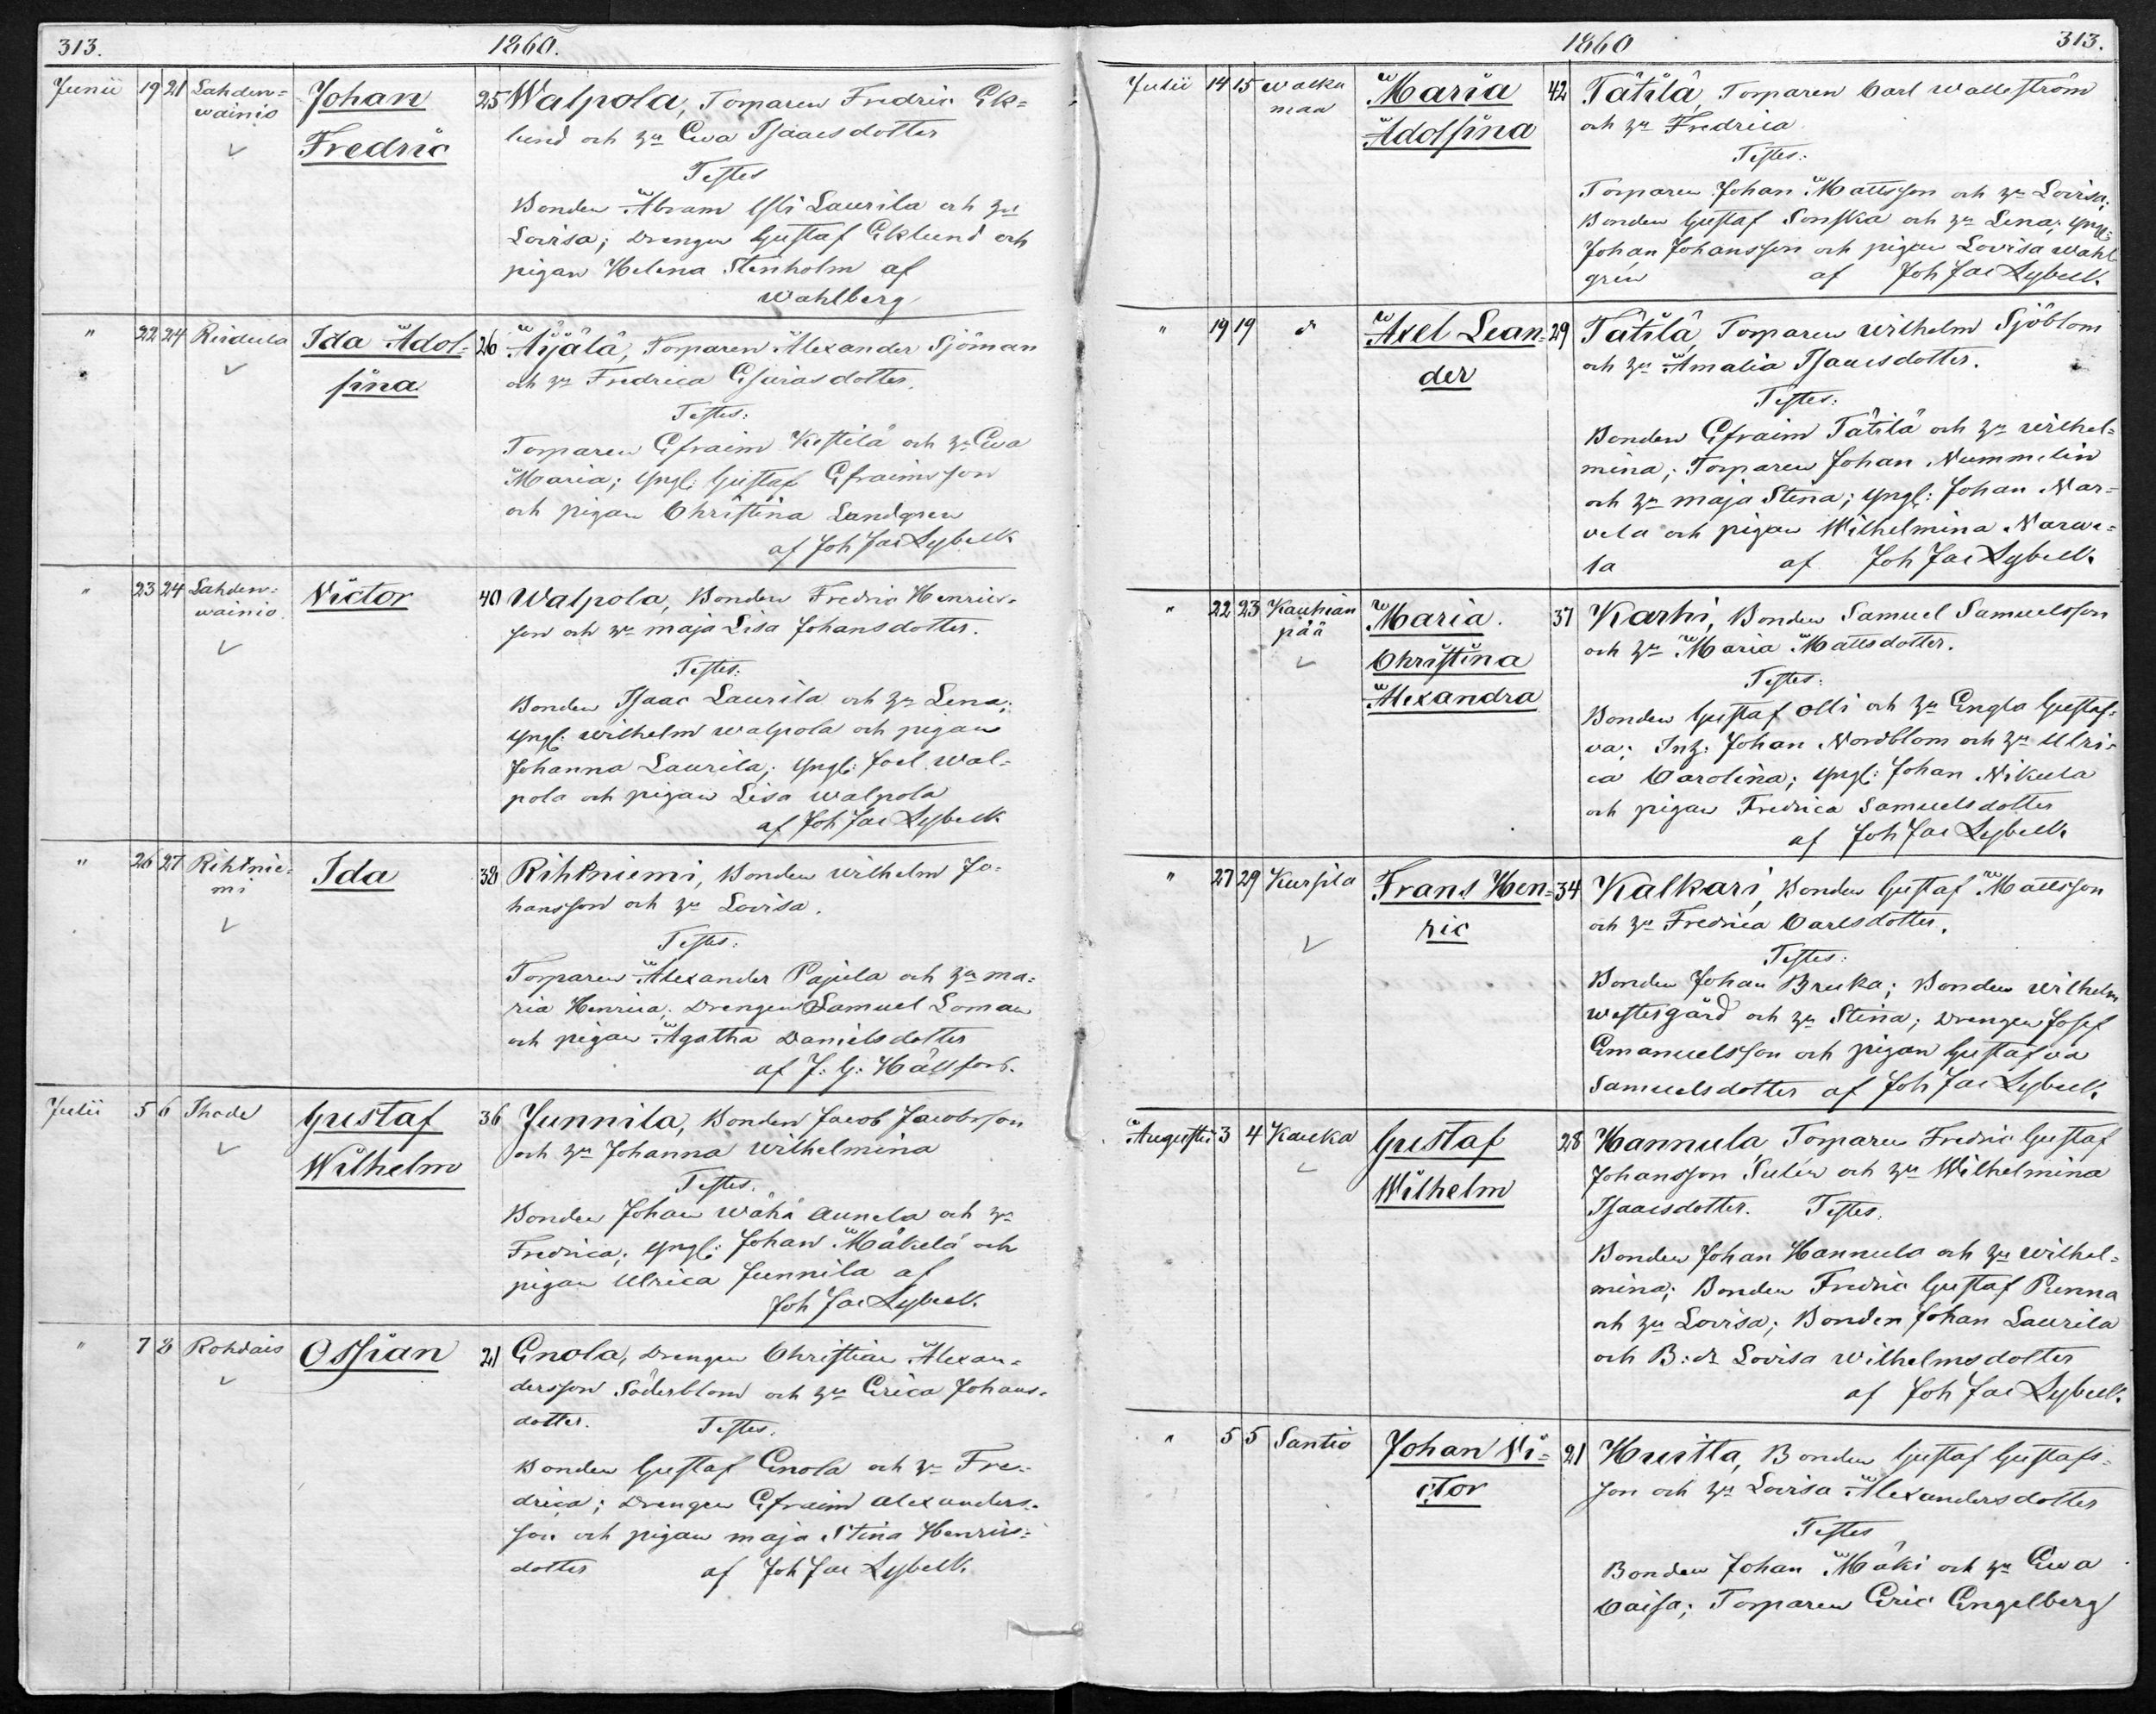 313. 1860.
Junii 19 21 Lahden= Johan 25 Walpola, Torparen Fredric Ek=
wainio Fredric lund och hu Ewa Isaacsdotter
Testes
Bonden Abram Olli Laurila och hu
Lovisa; Drengen Gustaf Eklund och
pigan Helena Stenholm af
Wahlberg
" 22 24 Ristula Ida Adol= 26 Äijälä, Torparen Alexander Sjöman
fina och hu Fredrica Esaiasdotter.
Testes:
Torparen Efraim Kestilä och hu Ewa
Maria; yngl: Gustaf Efraimsson
och pigan Christina Landgren
af Joh Jac Lybeck
" 23 24 Lahden= Victor 40 Walpola, Bonden Fredric Henrics=
wainio. son och hu Maja Lisa Johansdotter.
Testes:
Bonden Isaac Laurila och hu Lena;
yngl: Wilhelm Walpola och pigan
Johanna Laurila; yngl: Joel Wal=
pola och pigan Lisa Walpola
af Joh Jac Lybeck
" 26 27 Rihtnie= Ida 38 Rihtniemi, Bonden Wilhelm Jo=
mi hansson och hu Lovisa.
Testes:
Torparen Alexander Pajula och hu Ma=
ria Henrica; Drengen Samuel Loman
och pigan Agatha Danielsdotter
af J: G: Hällfors.
Julii 5 6 Ihode Gustaf 36 Junnila, Bonden Jacob Jacobsson
Wilhelm och hu Johanna Wilhelmina
Testes.
Bonden Johan Wähä Aunela och hu
Fredrica; yngl: Johan Mäkelä och
pigan Ulrica Junnila af
Joh Jac Lybeck.
" 7 8 Rohdais Ossian 21 Enola, Drengen Christian Alexan=
dersson Söderblom och hu Erica Johans=
dotter. Testes.
Bonden Gustaf Enola och hu Fre=
drica; Drengen Efraim Alexanders=
son och pigan Maja Stina Henrics=
dotter af Joh Jac Lybeck.
1860 313.
Julii 14 15 Walku Maria 42 Tätilä, Torparen Carl Walleström
maa Adolfina och hu Fredrica
Testes:
Torparen Johan Mattsson och hu Lovisa;
Bonden Gustaf Sonska och hu Lena; yngl:
Johan Johansson och pigan Lovisa Wahl
gren af Joh Jac Lybeck.
" 19 19 d Axel Lean= 29 Tätilä, Torparen Wilhelm Sjöblom
der och hu Amalia Isaacsdotter.
Testes:
Bonden Efraim Tätilä och hu Wilhel=
mina; Torparen Johan Nummelin
och hu Maja Stina; yngl: Johan Nar=
vela och pigan Wilhelmina Narwe=
la af Joh Jac Lybeck.
" 22 23 Kauhian Maria 37 Karhi, Bonden Samuel Samuelsson
pää Christina och hu Maria Mattsdotter.
Alexandra Testes:
Bonden Gustaf Olli och hu Engla Gustaf=
va; Inh: Johan Nordblom och hu Ulri=
ca Carolina; yngl: Johan Nikula
och pigan Fredrica Samuelsdotter
af Joh Jac Lybeck.
" 27 29 Kursila Frans Hen= 34 Kalkari, Bonden Gustaf Mattsson
ric och hu Fredrica Carlsdotter.
Testes:
Bonden Johan Bruka; Bonden Wilhelm
Westergård och hu Stina; Drengen Josef
Emanuelsson och pigan Gustafva
Samuelsdotter af Joh Jac Lybeck.
Augusti 3 4 Kauka Gustaf 28 Hannula Torparen Fredric Gustaf
Wilhelm Johansson Sulin och hu Wilhelmina
Isaacsdotter. Testes.
Bonden Johan Hannula och hu Wilhel=
mina; Bonden Fredric Gustaf Punna
och hu Lovisa; Bonden Johan Laurila
och B:dr Lovisa Wilhelmsdotter
af Joh Jac Lybeck.
" 5 5 Santio Johan Vi= 21 Huitta, Bonden Gustaf Gustafs=
ctor son och hu Lovisa Alexandersdotter
Testes
Bonden Johan Mäki och hu Ewa
Caisa; Torparen Eric Engelberg